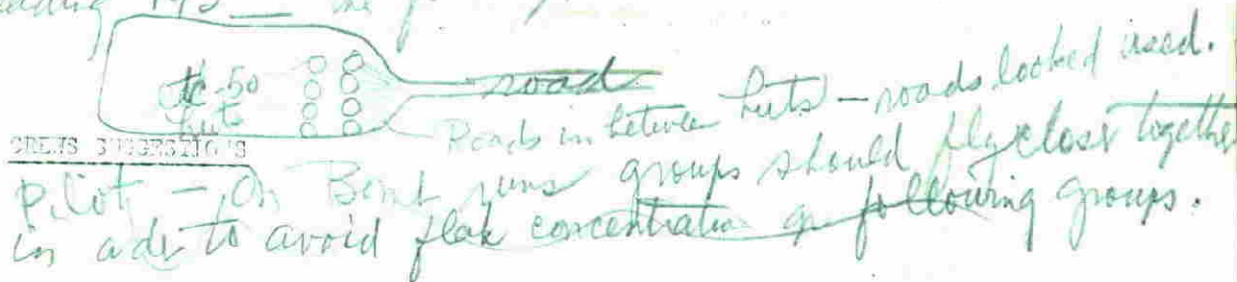 road
50
huts
Roads in between huts – roads looked used.
CREWS SUGGESTIONS
Pilot – On Bomb runs groups should fly closer together
in order to avoid flak concentration on following groups.